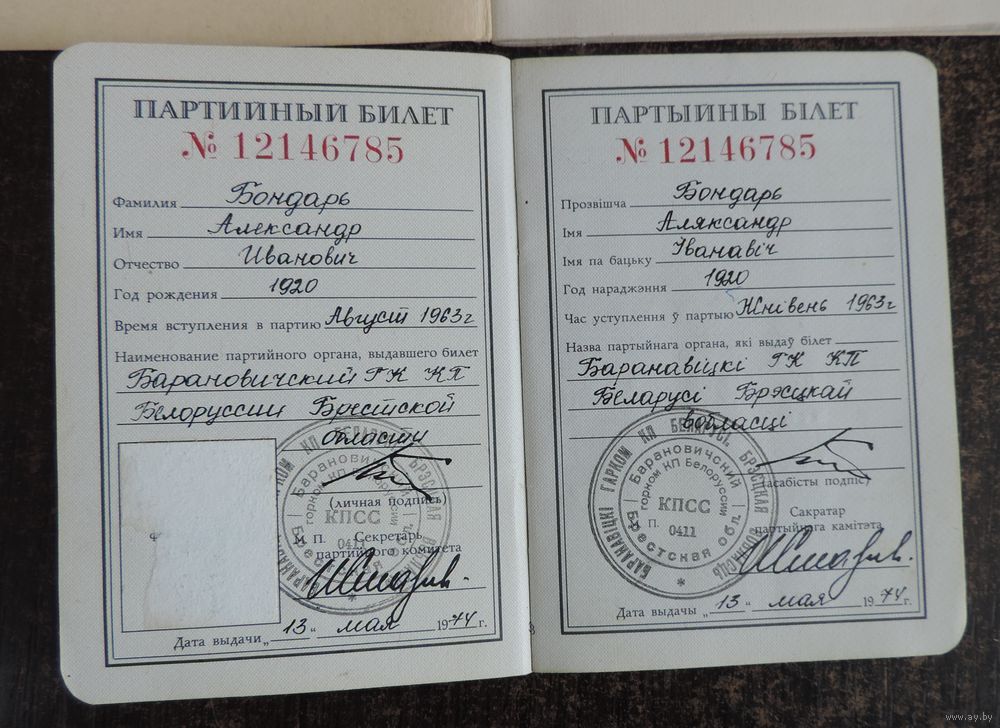 ПАРТИЙНЫЙ БИЛЕТ
№ 12146785
Фамилия Бондарь
Имя Александр
Отчество Иванович
Год рождения 1920
Время вступления в партию Август 1963 г
Наименование партийного органа, выдавшего билет
Барановичский ГК КП
Белоруссии Брестской
области
(личная подпись)
М. П. Секретарь
партийного комитета
Дата выдачи „13“ мая 1974 г.
БАРАНАВІЦКІ ГАРКОМ КП БЕЛАРУСІ, БРЭСЦКАЯ ВОБЛАСЦЬ
Барановичский горком КП Белоруссии
Брестская обл.
КПСС
0411
ПАРТЫЙНЫ БІЛЕТ
№ 12146785
Прозвішча Бондарь
Імя Аляксандр
Імя па бацьку Іванавіч
Год нараджэння 1920
Час уступлення ў партыю Жнівень 1963 г
Назва партыйнага органа, які выдаў білет
Баранавіцкі ГК КП
Беларусі Брэсцкай
вобласці
(асабісты подпіс)
П.
Сакратар
партыйнага камітэта
Дата выдачы „13“ мая 1974 г.
БАРАНАВІЦКІ ГАРКОМ КП БЕЛАРУСІ, БРЭСЦКАЯ ВОБЛАСЦЬ
Барановичский горком КП Белоруссии
Брестская обл.
КПСС
0411
www.ay.by